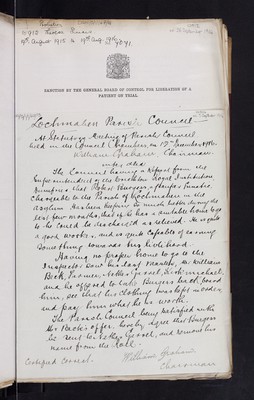 SANCTION BY THE GENERAL BOARD OF CONTROL FOR LIBERATION OF A
PATIENT ON TRIAL.
Lochmaben Parish Council
At Statutory Meeting of Parish Council
held in the Council Chambers, on 12th December 1916.
William Graham, Chairman.
inter alia
The Council having a Report from the
Superintendent of the Crichton Royal Institution
Dumfries that Robert Burgess a Pauper Lunatic
Chargeable to the Parish of Lochmaben in the
Asylum has been keeping so much better during the
last few months, that if he has a suitable home to go
to he could be discharged as relieved. He is quite
a good worker, and is quite capable of earning
something towards his livelihood.
Having no proper home to go to the
Inspector sent his last Master, Mr William
Beck, Farmer, Nether Garrel, Kirkmichael,
and he offered to take Burgess back, feed
him, see that his clothing was kept in order,
and pay him what he is worth.
The Parish Council being satisfied with
Mr Beck's offer, hereby agree that Burgess
be sent to Nether Garrel, and remove his
name from the roll.
Certified Correct.
William Graham
Chairman